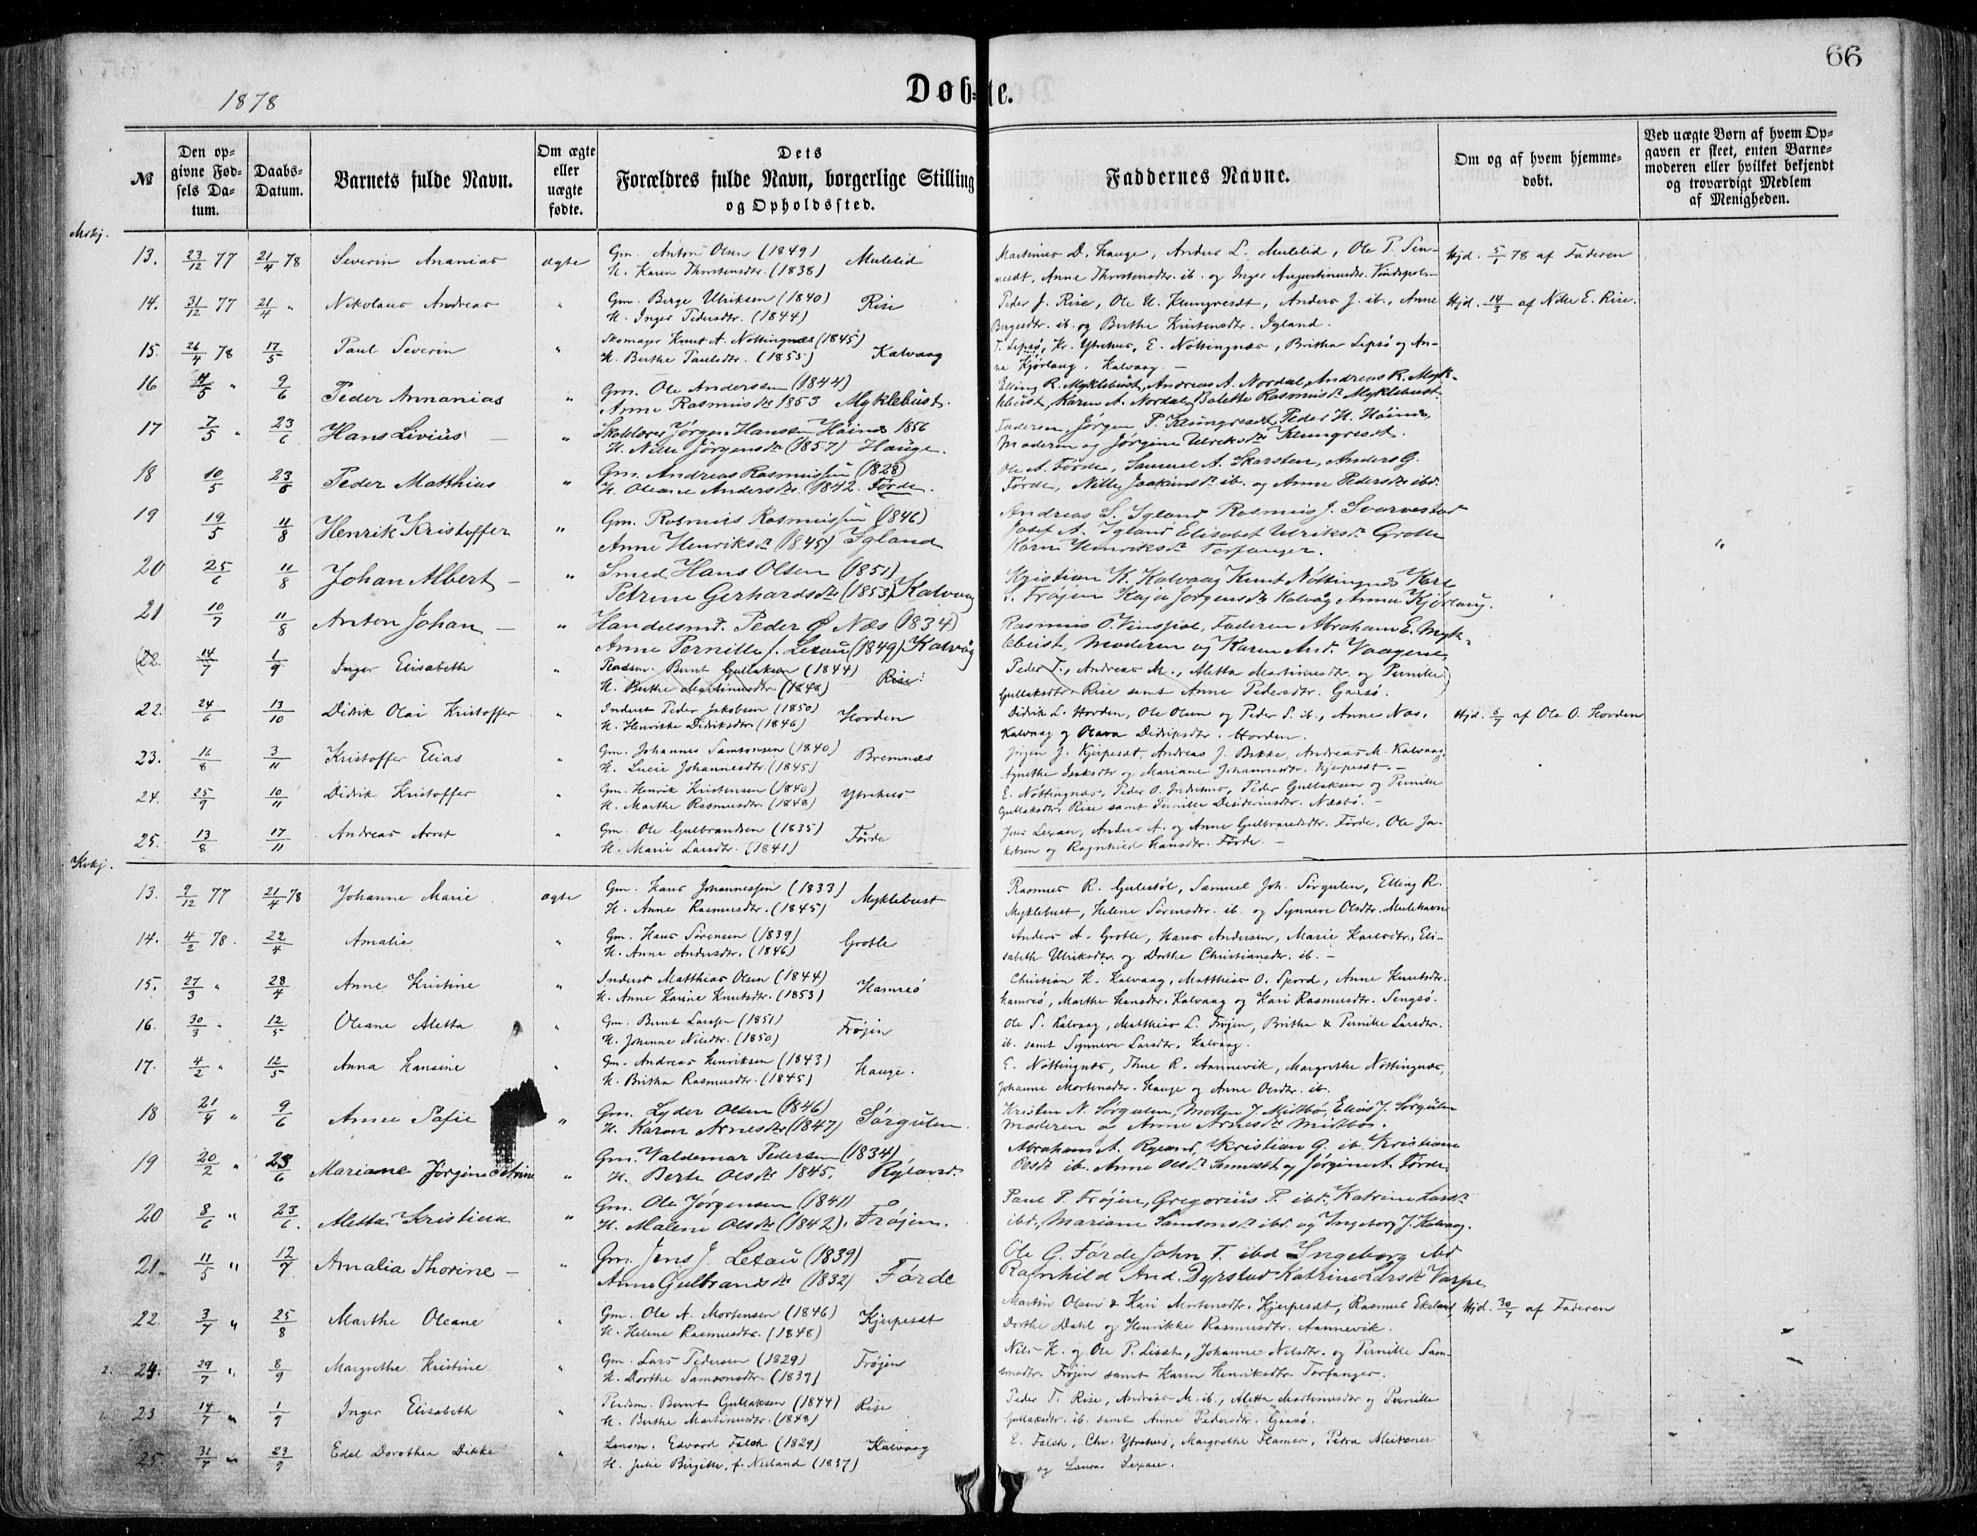 66
1878
Døbte.
№
Den op-
givne Fød-
sels Da-
tum.
Daabs-
Datum.
Barnets fulde Navn.
Om ægte
eller
uægte
fødte.
Dets
Forældres fulde Navn, borgerlige Stilling
og Opholdssted.
Faddernes Navne.
Om og af hvem hjemme-
døbt.
Ved uægte Børn af hvem Op-
gaven er skeet, enten Barne-
moderen eller hvilket bekjendt
og troværdigt Medlem
af Menigheden.
Mskj.
13. 23/12 77 21/4 78 Severin Ananias ægte Gm. Anton Olsen (1849) Mulelid Martinus D. Hauge, Anders L. Mulelid, Ole P. Sen- Hjd. 5/1 78 af Faderen
H. Karen Thorstensdtr. (1838) Anne Thorstensdtr. ib. og Inger Augustinusdtr. Vindspoln
14. 31/12 77 21/4 " Nikolaus Andreas " Gm. Berge Ulriksen (1840) Rise Peder J. Rise, Ole U. Klungresdt, Anders J. ib., Anne Hjd. 14/3 af Nille E. Rise.
H. Inger Pedersdtr. (1844) Bergesdtr. ib. og Berthe Kristensdtr. Igland.
15. 26/4 78 17/5 Paul Severin " Skomager Knut A. Nøttingnæs (1845) T. Lepsø, Kr. Ytrehus, E. Nøttingnæs, Britha Lepsø og An-
H. Berthe Paulsdtr. (1855) Kalvaag na Kjørlaug, Kalvaag.
16 4/5 " 9/6 Peder Annanias " Gm. Ole Anderssen (1844) Elling R. Myklebust, Andreas A. Nordal, Andreas R. Myk-
Anne Rasmusdtr 1853 Myklebust. lebust, Karen A. Nordal, Valette Rasmusdtr Myklebust
17 7/5 " 23/6 Hans Livius — " Skolelærer Jørgen Hanssen Høines 1856 Faderen, Jørgen P. Klungresdt, Peder H. Høines,
H. Nille Jørgensdtr (1857) Hauge. Moderen og Jørgine Ulriksdtr Klungresdt.
18 10/5 23/6 Peder Matthias " Gm. Andreas Rasmussen (1828) Ole A. Førde, Samuel A. Skarsten, Anders G.
H. Oleane Andersdtr. (1842. Førde. Førde, Nille Joakimsdtr ib. og Anne Pedersdtr ibd.
19 19/5 11/8 Henrik Kristoffer " Gm. Rasmus Rasmussen (1846) Andreas S. Igland Rasmus J. Svarvestad
Anne Henriksdtr (1845) Igland Josef A. Igland Elisabet Ulriksdtr Grotle
Karen Henriksdtr Torfanger.
20 25/6 11/8 Johan Albert — " Smed Hans Olsen (1851) Kristian K. Kalvaag Knut Nøttingnæs Karl
Petrine Gerhardsdtr (1853) Kalvaag S. Frøjen Kaja Jørgensdtr Kalvåg Anna Kjørlaug.
21 10/7 11/8 Anton Johan — " Handelsmd. Peder Ø Næs (1834) Rasmus O. Vinspol, Faderen Abraham E. Myk-
Anne Pernille J. Lexau (1849) Kalvåg lebust, Moderen og Karen And. Vaagene,
(22. 14/7 1/9 Inger Elisabeth " Perdsm. Bernt Gullaksen (1844) Rise Peder T., Andreas M., Aletta Martinusdtr. og Pernille
H. Berthe Martinusdtr. (1848) Gullaksdtr. Rise samt Anne Pedersdtr. Gaasø.
22. 24/6 13/10 Didrik Olai Kristoffer " Inderst Peder Jakobsen (1850) Horden Didrik L. Horden, Ole Olsen og Peder S. ib., Anne Næs, Hjd. 6/7 af Ole O. Horden
H. Henrikke Didriksdtr. (1846) Kalvaag og Olava Didriksdtr. Horden.
23. 16/8 3/11 Kristoffer Elias " Gm. Johannes Samsonsen (1840) Bremnæs Jørgen J. Kjerpesæt, Andreas J. Bikke, Andreas M. Kalvaag,
H. Lucie Johannesdtr. (1845) Agnethe Isaksdtr og Mariane Johannesdtr. Kjerpesæt.
24. 25/9 10/11 Didrik Kristoffer " Gm. Henrik Kristensen (1840) Ytrehus E. Nøttingnæs, Peder O. Indrehus, Peder Gullaksen og Pernille
H. Marthe Rasmusdtr. (1848) Gullaksdtr. Rise samt Pernille Desideriusdtr. Næsbø.
25. 13/8 17/11 Andreas Arnt " Gm. Ole Gulbrandsen (1835) Førde Jens Lexau, Anders A. og Anne Gulbrandsdtr. Førde, Ole Ja-
H. Marie Larsdtr. (1841) kobsen og Ragnhild Hansdtr. Førde.
Kvkj.
13. 9/12 77 21/4 78 Johanne Marie ægte Gm. Hans Johannessen (1833) Myklebust Rasmus R. Gulestøl, Samuel Joh. Sørgulen, Elling R.
H. Anne Rasmusdtr. (1845) Myklebust, Helene Sørensdtr. ib. og Synneve Olsdtr. Mulehavn
14. 4/2 78. 22/4 Amalie " Gm. Hans Sørensen (1839) Grotle Anders A. Grotle, Hans Andersen, Marie Karlsdtr., Eli-
H. Anne Andersdtr. (1846) sabeth Ulriksdtr. og Dorthe Christiansdtr. ib.
15. 27/3 " 28/4 Anne Kristine " Inderst Matthias Olsen (1844) Hamrsø Christian K. Kalvaag, Matthias O. Spord, Anne Knutsdtr.
H. Anne Karine Knutsdtr. (1853) Hamrsø, Marthe Hansdtr. Kalvaag og Kari Rasmusdtr. Sengsø.
16. 30/3 " 12/5 Oleane Aletta " Gm. Bernt Larssen (1851) Frøjen Ole S. Kalvaag, Matthias L. Frøjen, Britha & Pernille Larsdtr.
H. Johanne Nilsdtr. (1850) ib. samt Synneve Larsdtr. Kalvaag.
17. 4/2 " 12/5 Anna Hansine " Gm. Andreas Henriksen (1843) Hauge. E. Nøttingnæs, Thue R. Aannevik, Margrethe Nøttingnæs,
H. Britha Rasmusdtr. (1845) Johanne Mortensdtr. Hauge og Anne Olsdtr. ib.
18 21/4 " 9/6 Anne Sofie " Gm. Lyder Olsen (1846) Sørgulen Kristen N. Sørgulen, Morten J. Midtbø, Elias J. Sørgulen
H. Karen Arnesdtr (1847) Moderen og Anne Arnesdtr Midtbø.
19 20/2 " 23/6 Mariane Jørgine Cetrine " Gm. Valdemar Pedersen (1834) Abraham A. Ryland, Kristian G. ib Kristiane
H. Berte Olsdtr 1845. Rylands Olsdtr ib. Anne Olsdtr Sennesdt og Jørgine A. Førde.
20 8/6 " 23/6. Aletta Kristina " Gm. Ole Jørgensen (1841) Paul P. Frøjen, Gregorius P. ibd. Katrine Larsdtr
H. Malene Olsdtr (1842). Frøjen. ibd, Mariane Samsonsdtr ibd og Ingeborg J. Kalvaag.
21. 11/5 " 12/7 Amalia Thorine — " Gm. Jens J. Lexau (1839) Ole G. Førde John T. ibd Ingeborg ibd
Anne Gulbrandsdtr (1832) Førde Ragnhild And. Dyrstad Katrine Larsdtr Varpe
22. 3/7 " 25/8 Marthe Oleane " Gm. Ole A. Mortensen (1846) Kjerpesæt Martin Olsen & Kari Mortensdtr. Kjerpesæt, Rasmus Ekeland, Hjd. 30/7 af Faderen
H. Helene Rasmusdtr. (1848) Dorthe Dahl og Henrikke Rasmusdtr. Aannevik.
24. 29/7 " 8/9 Margrethe Kristine " Gm. Lars Pedersen (1829) Frøjen Nils H. og Ole P. Liset, Johanne Nilsdtr. og Pernille Sam-
H. Dorthe Samsonsdtr. (1839) sonsdtr. Frøjen samt Karen Henriksdtr Torfanger.
23 14/7 " 1/9 Inger Elisabeth " Perdsm. Bernt Gullaksen (1844) Rise Peder T. Rise, Andreas M. ib., Aletta Martinusdtr og Pernille
H. Berthe Martinusdtr. (1848) Gullaksdtr. ib. samt Anne Pedersdtr. Gaasø.
25. 31/7 " 23/9 Edel Dorothea Dikke " Lensm. Edvard Falch (1829) Kalvaag E. Falch, Chr. Ytrehus, Margrethe Flamer, Petra
H. Julie Birgitte, f. Neeland (1837) og Laura Lexau.